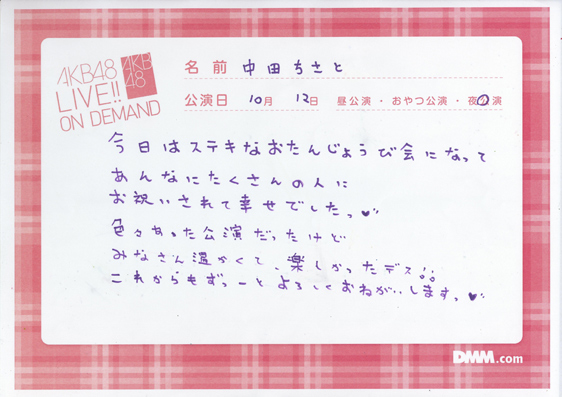 AKB48
LIVE!!
ON DEMAND
AKB
48
名前 中田ちさと
公演日 10月 12日 昼公演・おやつ公演・夜公演
今日はステキなおたんじょうび会になって
あんなにたくさんの人に
お祝いされて幸せでしたっ♥
色々あった公演だったけど
みなさん温かくて、楽しかったデス!!
これからもずっーとよろしくおねがいしますっ♥
DMM.com